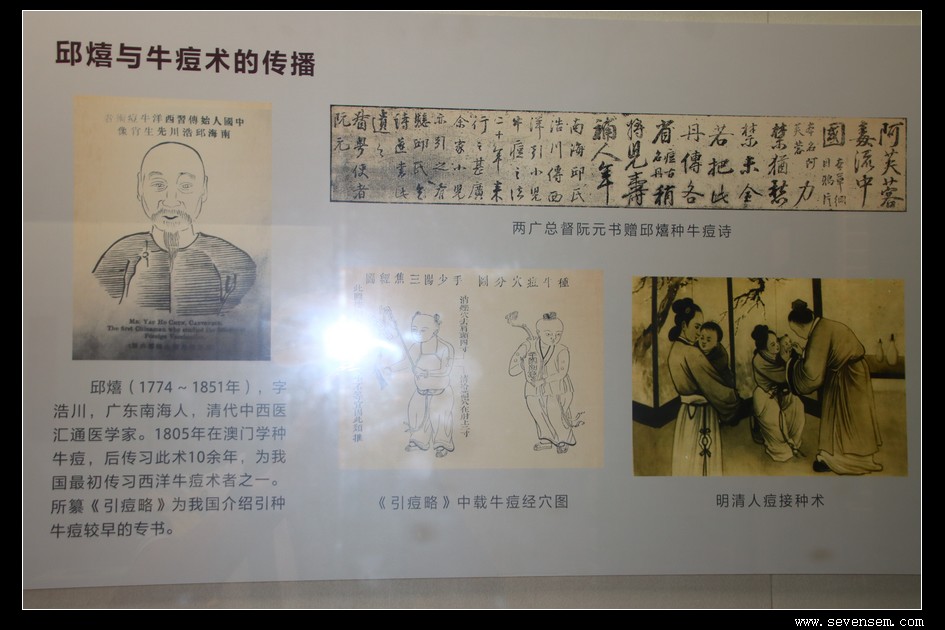 邱熺与牛痘术的传播
中國人始傳習西洋牛痘
南海邱浩川先生肖像
The first Chinaman who
阿芙蓉
毒流中
國
力
禁猶愁
禁未全
若把此
丹傳各
省稍
將見壽
補人年
南海邱氏
浩川傳西
洋引小兒
牛痘之法
二十年來
行之甚廣
余家小兒
亦引之有
驗邱氏索
詩遂書此
遺之
阮元
两广总督阮元书赠邱熺种牛痘诗
種牛痘穴分圖 手少陽三焦經圖
邱熺（1774～1851年），字
浩川，广东南海人，清代中西医
汇通医学家。1805年在澳门学种
牛痘，后传习此术10余年，为我
国最初传习西洋牛痘术者之一。
所纂《引痘略》为我国介绍引种
牛痘较早的专书。
《引痘略》中载牛痘经穴图
明清人痘接种术
www.sevensem.com